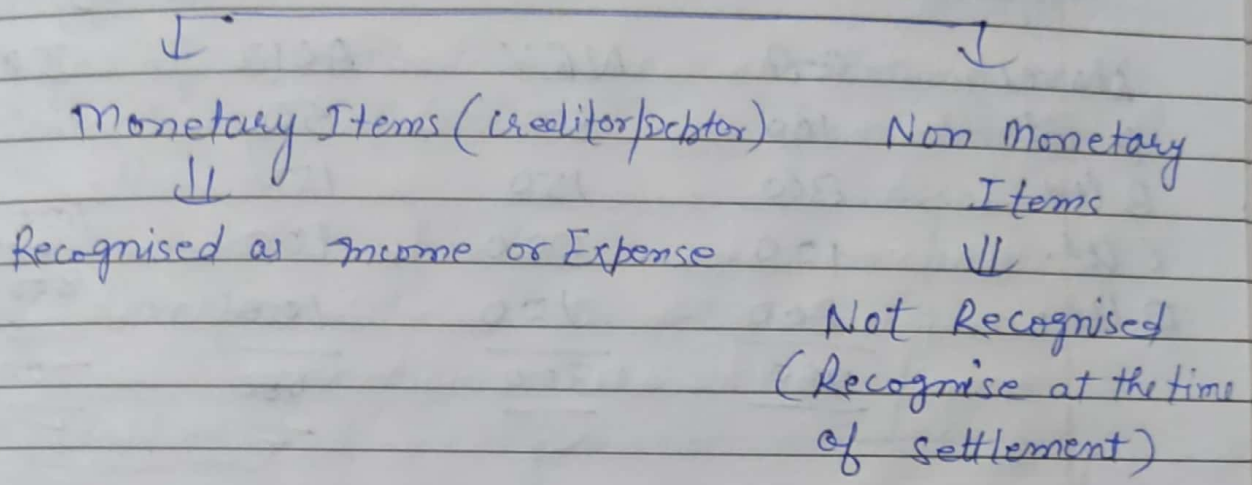 Monetary Items (creditor/Debtor)
Recognised as Income or Expense
Non Monetary
Items
Not Recognised
(Recognise at the time
of settlement)